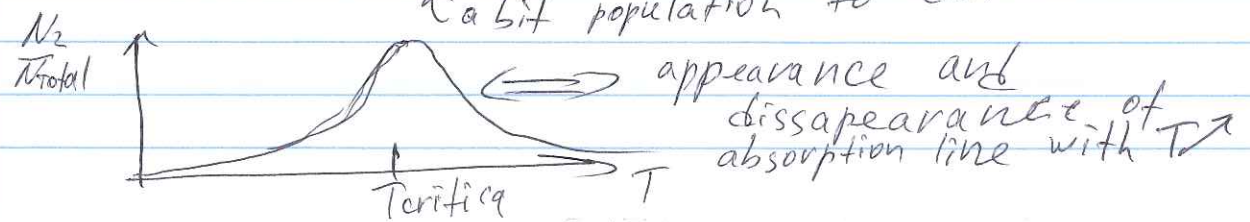 a bit population to
N₂
N_Total
appearance and
dissapearance of
absorption line with T↗
T
Tcritica